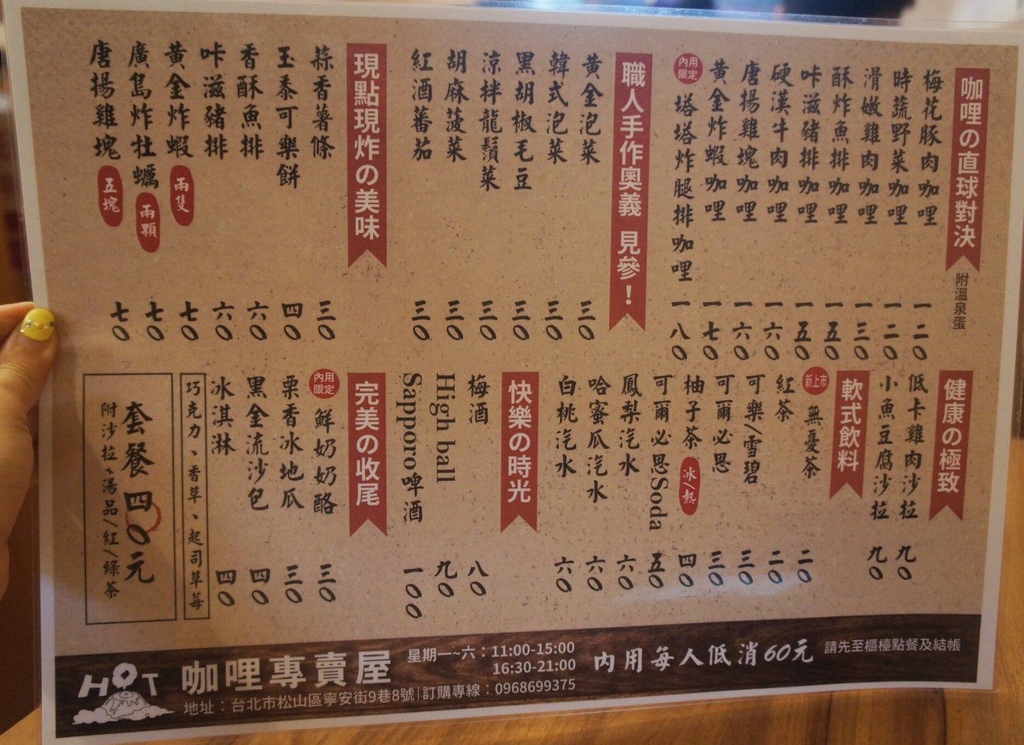 咖哩の直球對決
附溫泉蛋
梅花豚肉咖哩 一二〇
時蔬野菜咖哩 一二〇
滑嫩雞肉咖哩 一三〇
酥炸魚排咖哩 一五〇
咔滋豬排咖哩 一五〇
硬漢牛肉咖哩 一六〇
唐揚雞塊咖哩 一六〇
黃金炸蝦咖哩 一七〇
內用限定 塔塔炸腿排咖哩 一八〇
職人手作奧義 見參！
黃金泡菜 三〇
韓式泡菜 三〇
黑胡椒毛豆 三〇
涼拌龍鬚菜 三〇
胡麻菠菜 三〇
紅酒蕃茄 三〇
現點現炸の美味
蒜香薯條 三〇
玉黍可樂餅 四〇
香酥魚排 六〇
咔滋豬排 六〇
黃金炸蝦 兩隻 七〇
廣島炸牡蠣 兩顆 七〇
唐揚雞塊 五塊 七〇
健康の極致
低卡雞肉沙拉 九〇
小魚豆腐沙拉 九〇
軟式飲料
新上市 無憂茶 二〇
紅茶 二〇
可樂/雪碧 三〇
可爾必思 三〇
柚子茶 冰/熱 四〇
可爾必思Soda 五〇
鳳梨汽水 六〇
哈蜜瓜汽水 六〇
白桃汽水 六〇
快樂の時光
梅酒 八〇
High ball 九〇
Sapporo啤酒 一〇〇
完美の收尾
內用限定 鮮奶奶酪 三〇
栗香冰地瓜 三〇
黑金流沙包 四〇
冰淇淋 四〇
巧克力、香草、起司草莓
套餐四〇元
附沙拉+湯品/紅/綠茶
HOT
咖哩專賣屋
星期一~六：11:00-15:00
16:30-21:00
地址：台北市松山區寧安街9巷8號|訂購專線：0968699375
內用每人低消60元
請先至櫃檯點餐及結帳